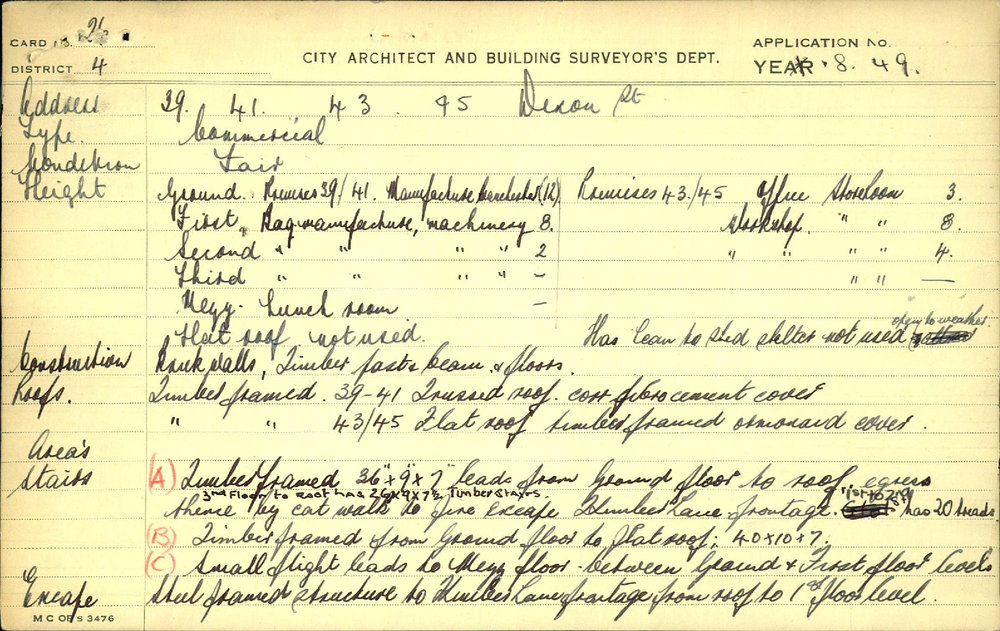 CARD No. 2
DISTRICT 4
CITY ARCHITECT AND BUILDING SURVEYOR'S DEPT.
APPLICATION No.
YEAR 8. 49.
Address 39. 41. 43. 45 Dixon St
Type. Commercial
Condition Fair
Height Ground. Premises 39/41. Manufacture (12) Premises 43/45 Office Storeroom 3.
First. Bag manufacture, machinery 8. Workshop. " " 8.
Second " " " " 2 " " " " 4.
Third " " " " – " " —
Mezz. Lunch room –
Flat roof not used. Has lean to shed shelter not used open to weather
Construction Brick walls, Timber posts beam & floors.
Roofs. Timber framed. 39-41 Trussed roof. corr fibrocement cover
" " 43/45 Flat roof timber framed ormonoid cover.
Area's
Stairs (A) Timber framed 36" x 9" x 7" leads from Ground floor to roof, egress
3rd Floor to roof has 26 x 9 x 7½ Timber Stairs.
thence by cat walk to fire escape Lane frontage. has 20 treads
(B) Timber framed from Ground floor to flat roof; 40 x 10 x 7.
(C) Small flight leads to Mezz floor between Ground & First floor levels
Escape Steel framed structure to Lane frontage from roof to 1st floor level.
M C OF S 3476